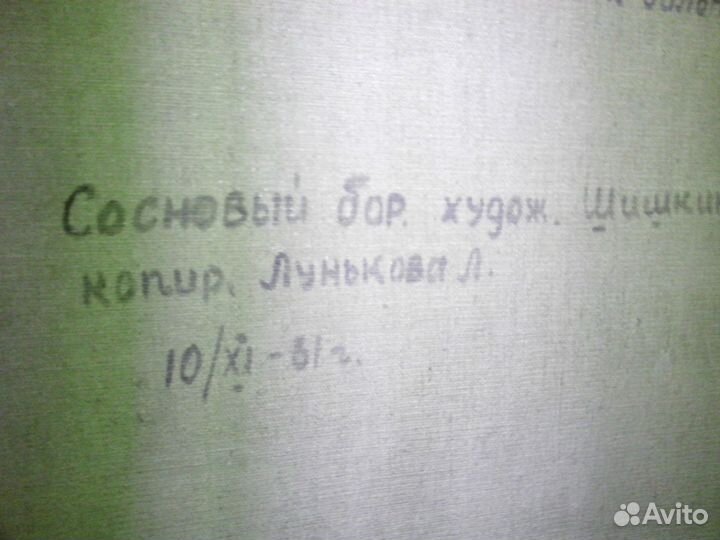 Сосновый бор. худож. Шишкин
копир. Лунькова Л.
10/XI-61г.
Avito